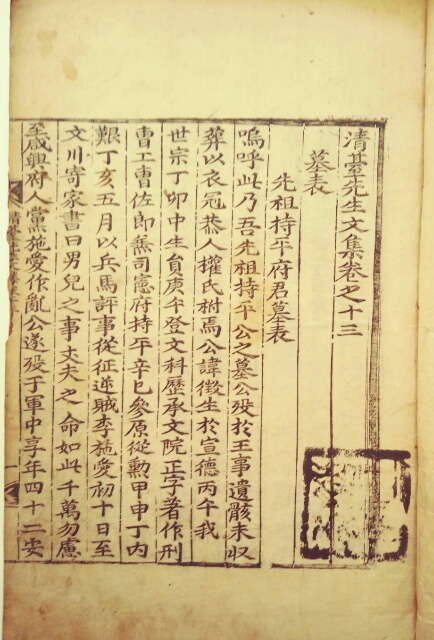 清臺先生文集卷之十三
墓表
先祖持平府君墓表
嗚呼此乃吾先祖持平公之墓公歿於王事遺骸未収
葬以衣冠恭人權氏祔焉公諱徵生於宣德丙午我
世宗丁卯中生員庚午登文科歷承文院正字著作刑
曹工曹佐郎兼司憲府持平辛巳參原從勳甲申丁內
艱丁亥五月以兵馬評事從征逆賊李施愛初十日至
文川寄家書曰男兒之事丈夫之命如此千萬勿慮
至咸興府人黨施愛作亂公遂歿于軍中享年四十二安